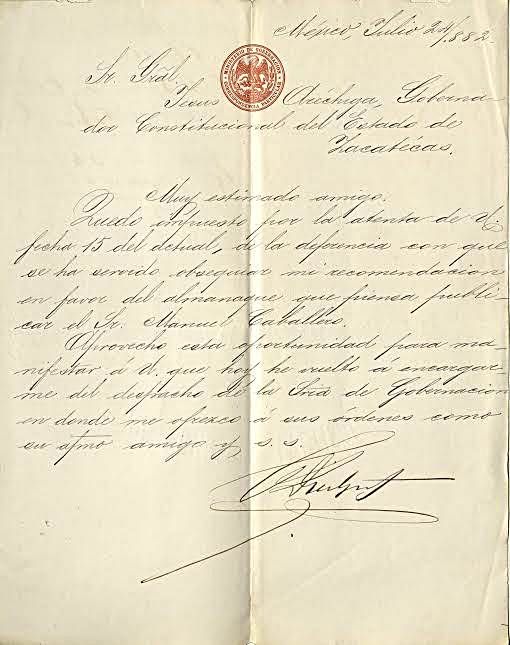 México, Julio 24/882.
MINISTERIO DE GOBERNACION
Sr. Gral.
Jesus Aréchiga, Goberna-
dor Constitucional del Estado de
Zacatécas.
Muy estimado amigo.
Quedo impuesto por la atenta de V.
fecha 15 del actual, de la deferencia con que
se ha servido obsequiar mi recomendacion
en favor del almanaque que piensa publi-
car el Sr. Manuel Caballero.
Aprovecho esta oportunidad para ma-
nifestar á V. que hoy he vuelto á encargar-
me del despacho de la Sría de Gobernacion
en donde me ofrezco á sus órdenes como
su afmo amigo y s. s.